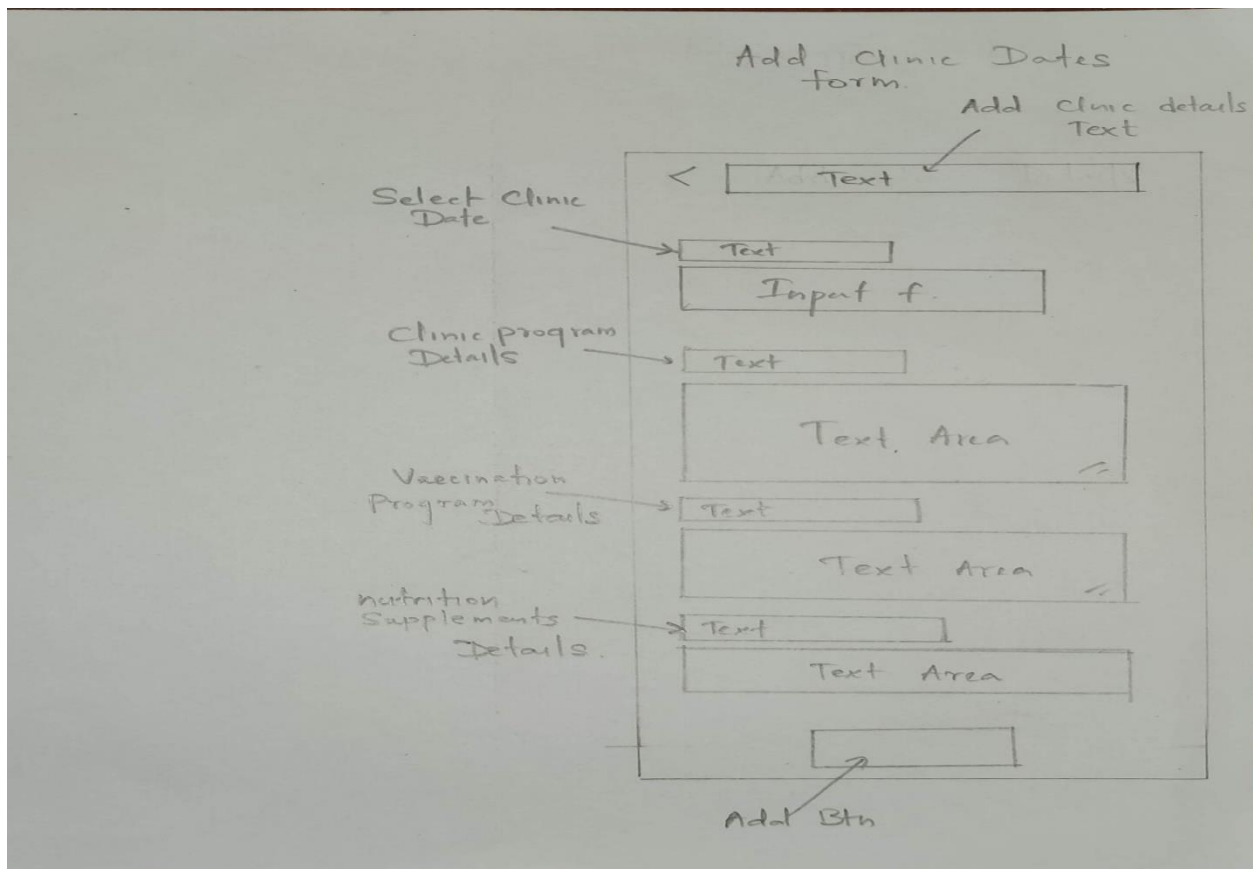 Add Clinic Dates
form.
Add Clinic details
Text
< Text
Select Clinic
Date
Text
Input f.
Clinic program
Details
Text
Text Area
Vaccination
Program
Details
Text
Text Area
nutrition
Supplements
Details.
Text
Text Area
Add Btn